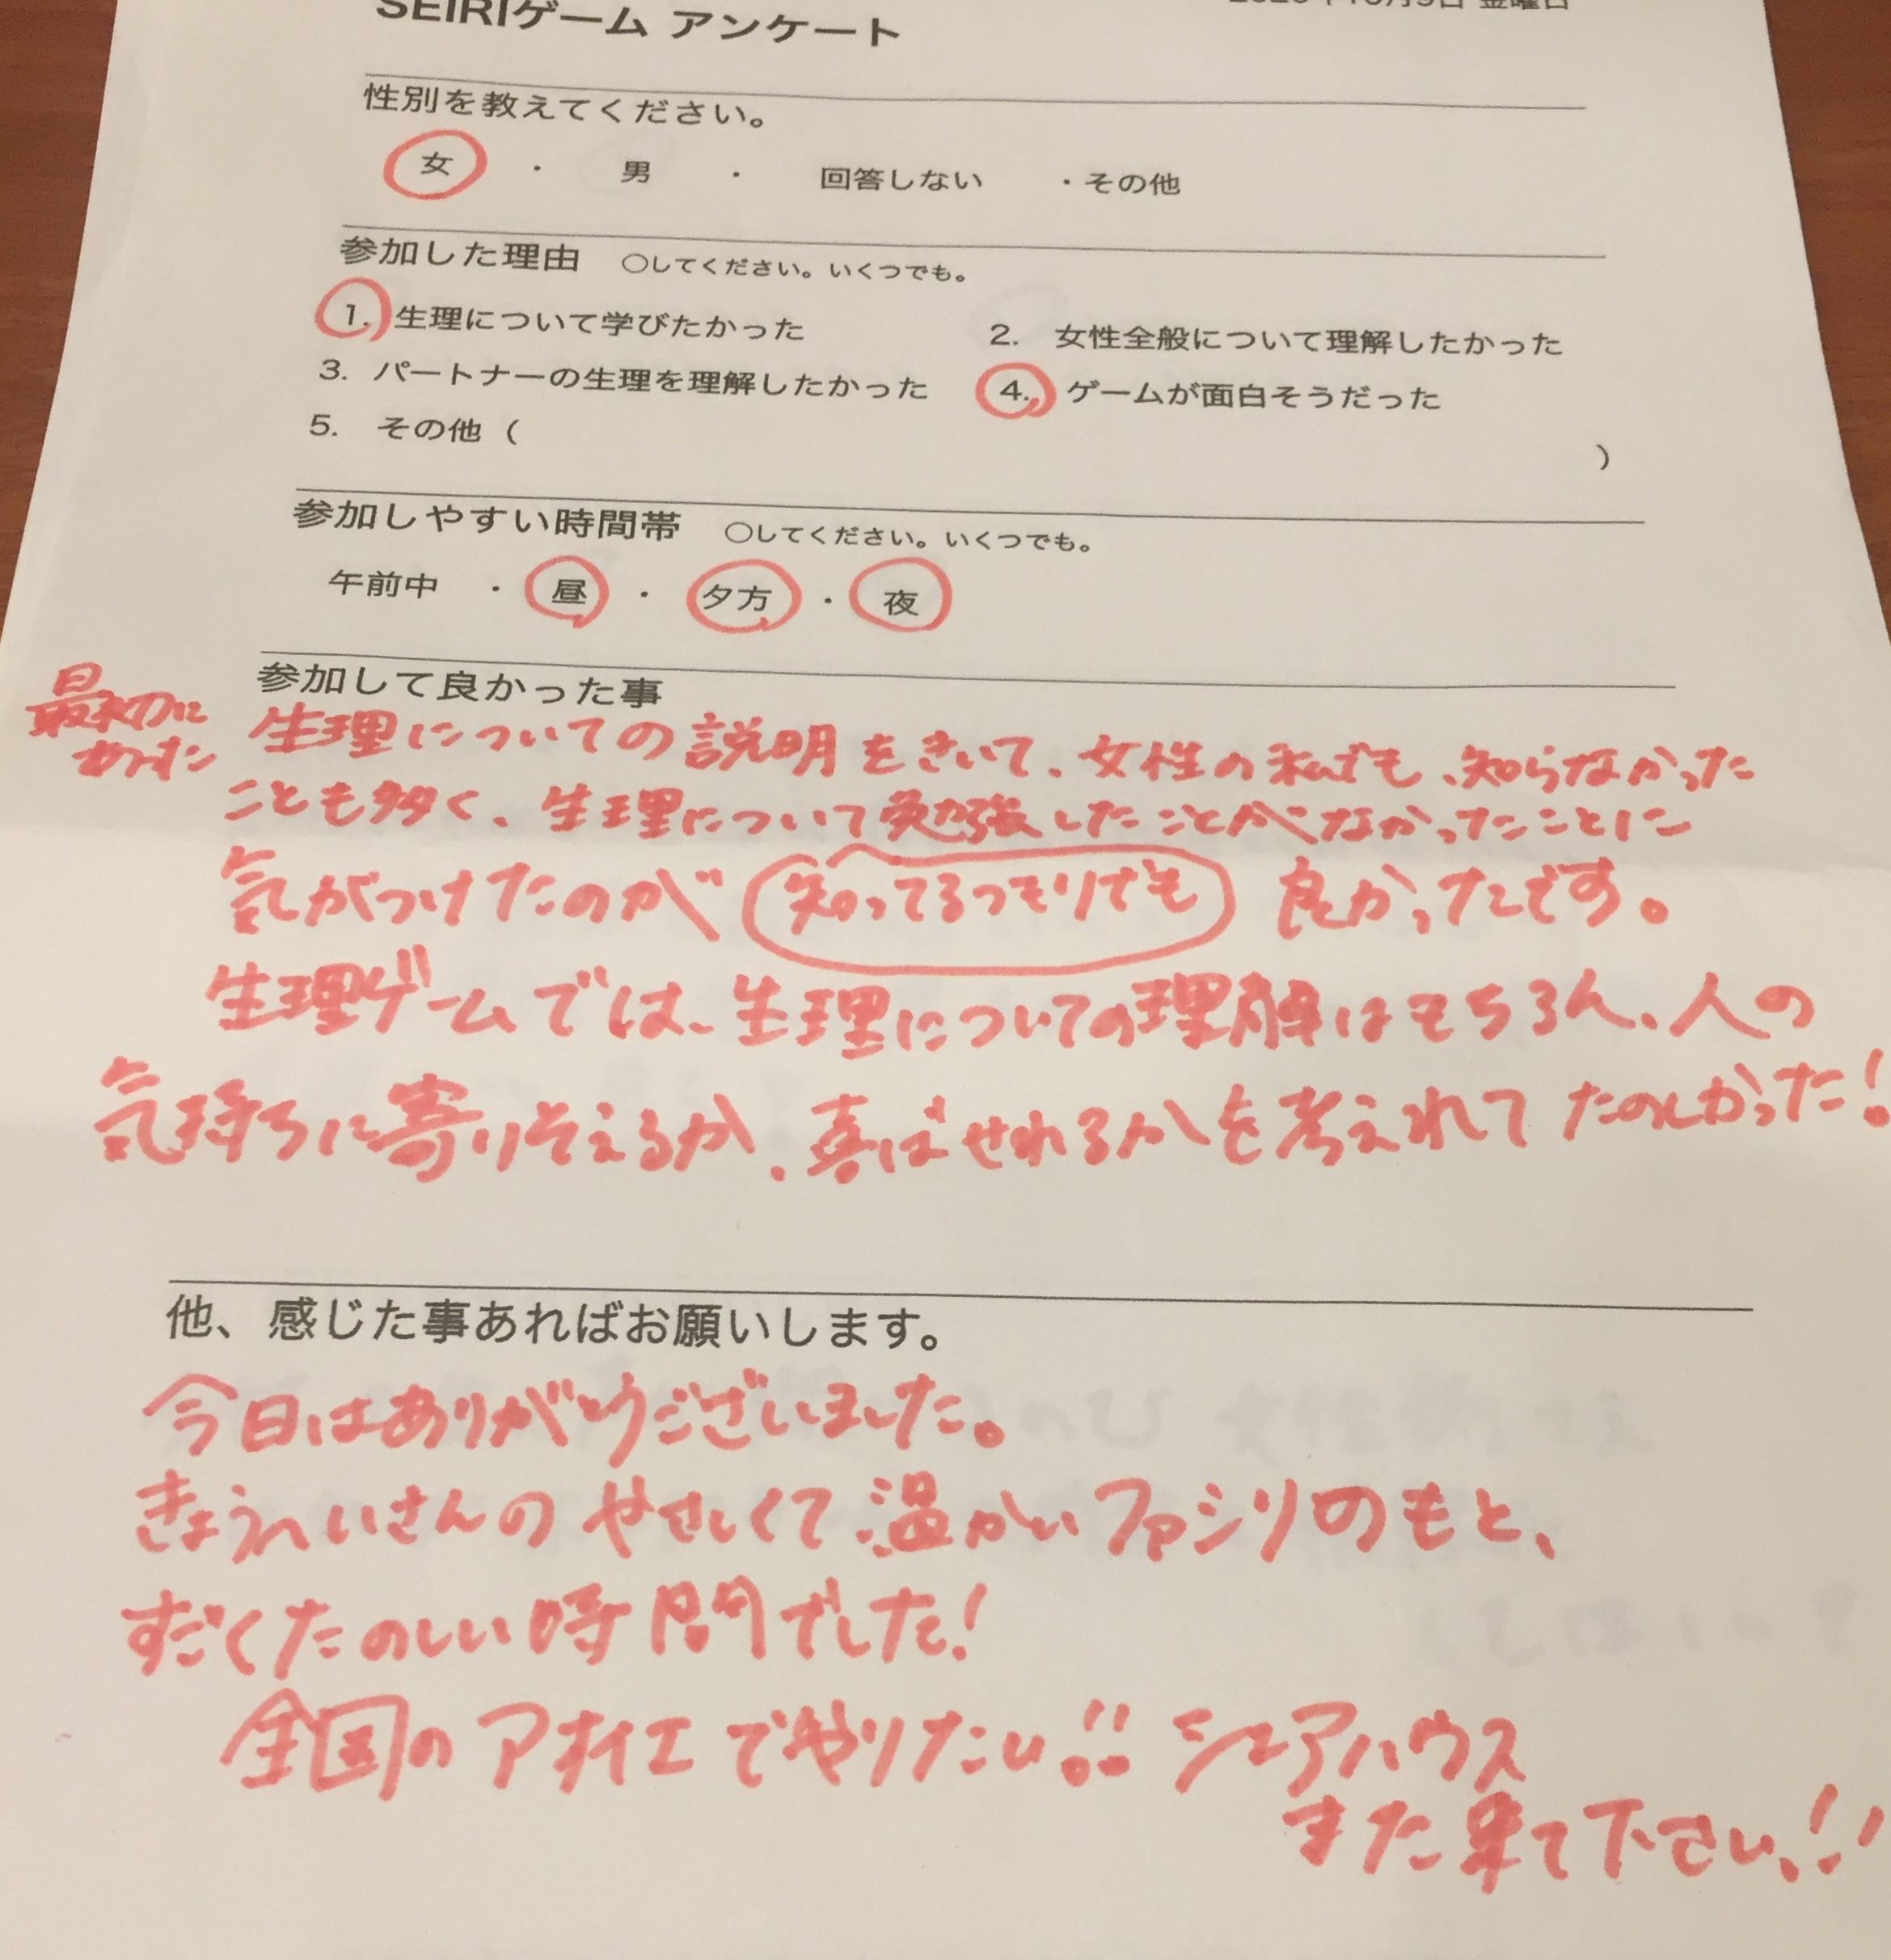 SEIRIゲーム アンケート
金曜日
性別を教えてください。
女 ・ 男 ・ 回答しない ・その他
参加した理由 ○してください。いくつでも。
1. 生理について学びたかった 2. 女性全般について理解したかった
3. パートナーの生理を理解したかった 4. ゲームが面白そうだった
5. その他 ( )
参加しやすい時間帯 ○してください。いくつでも。
午前中 ・ 昼 ・ 夕方 ・ 夜
参加して良かった事
最初に
あった
生理についての説明をきいて、女性の私でも、知らなかった
ことも多く、生理について勉強したことがなかったことに
気がつけたのが 知ってるつもりでも 良かったです。
生理ゲームでは、生理についての理解はもちろん、人の
気持ちに寄りそえるか、喜ばせれるかを考えれてたのしかった!
他、感じた事あればお願いします。
今日はありがとうございました。
きょうへいさんの やさしくて温かい ファシリのもと、
すごくたのしい時間でした!
全国のアオイエでやりたい!! シェアハウス
また来て下さい!!